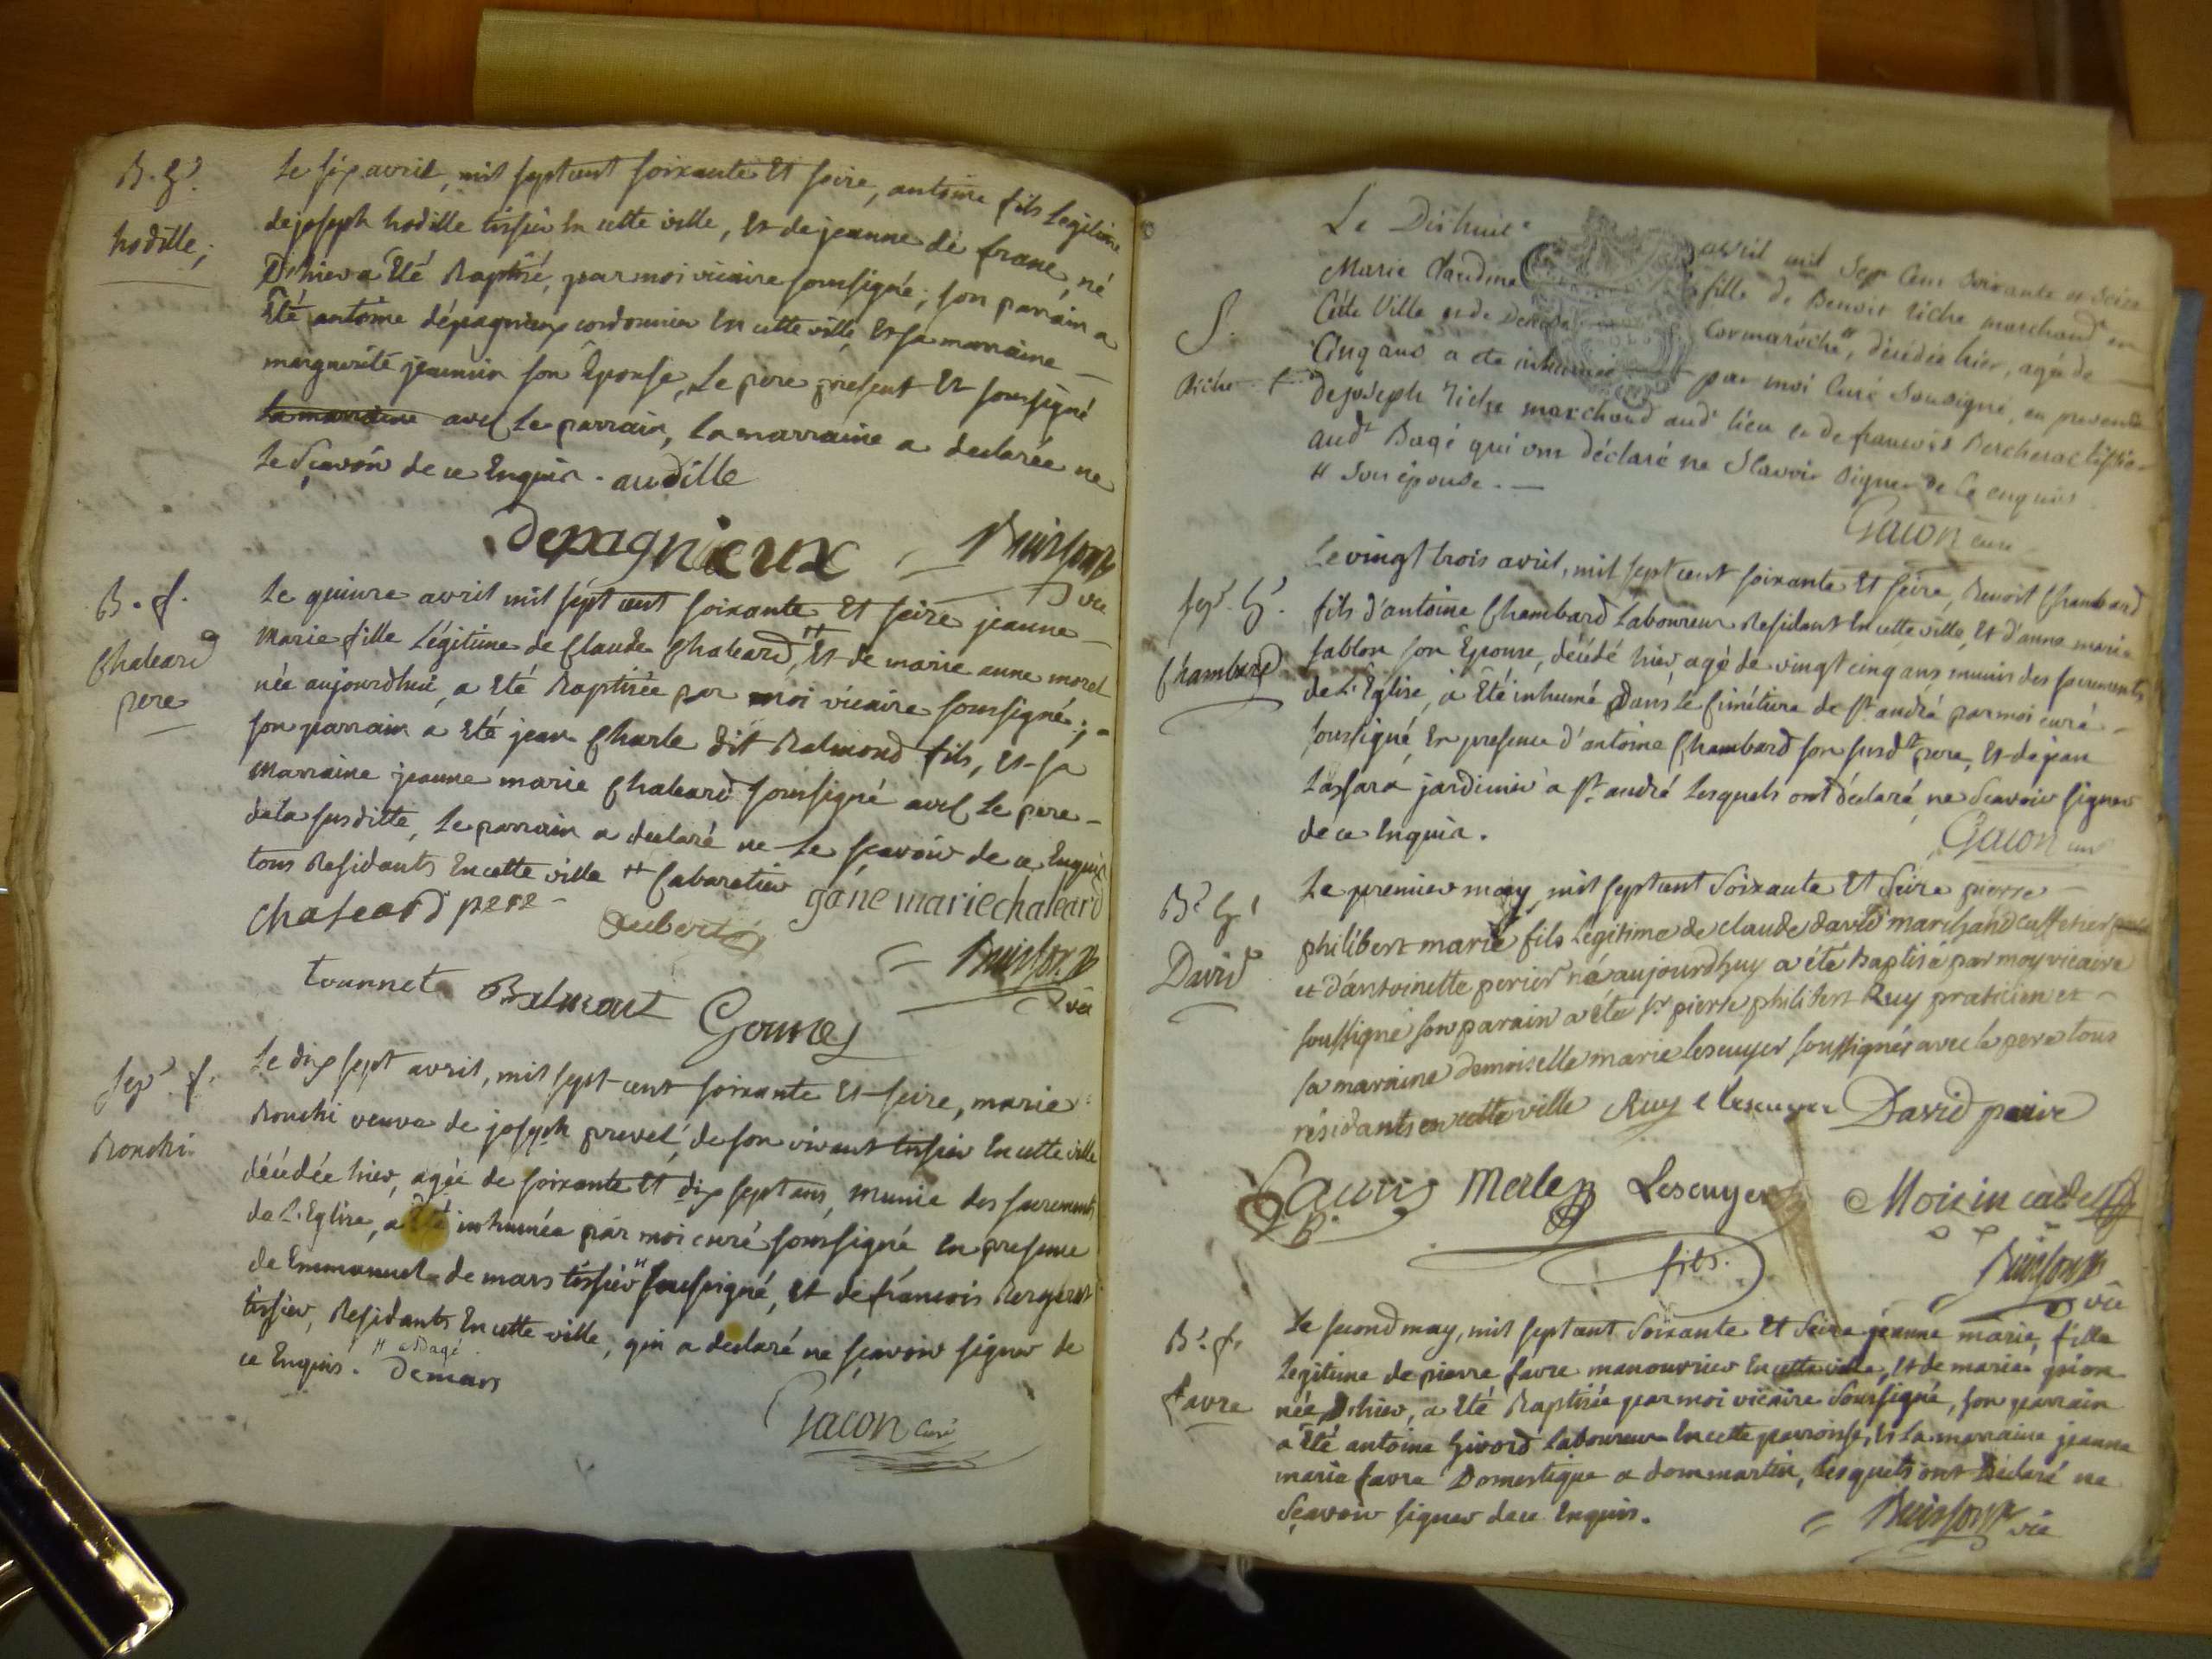 B. G.
hodille,
Le six avril, mil sept cent soixante Et seize, antoine fils Legitime
de joseph hodille tissier En cette ville, Et de jeanne de franc, né
D'hier a Eté Baptisé, par moi vicaire soussigné, son parrain a
Eté antoine dépagnieux cordonnier En cette ville Et sa marraine
marguerite jeannin son Epouse, Le pere present Et soussigné
La marraine avec Le parrain, La marraine a declarée ne
Le Sçavoir de ce Enquis. audille
Depagnieux Buisson
vic
B. f.
Chaleard
pere
Le quinze avril mil sept cent soixante Et seize jeanne
Marie fille Légitime de Claude Chaleard, # Et de marie anne morel
née aujourdhui, a Eté Baptisée par moi vicaire soussigné;
son parrain a Eté jean Charle dit Balmond fils, Et sa
Marraine jeanne marie Chaleard soussigné avec Le pere
de la susditte, Le parrain a declaré ne Le sçavoir de ce Enquis
tous Residants En cette ville # Cabaretier gane marie chaleard
chaleard pere Aubert
Buisson
vic
tournet Balmont Gounos
Sep. f.
Bonchi
Le dix sept avril, mil sept cent soixante Et seize, marie
Bonchi veuve de joseph prevel, de son vivant tissier En cette ville
décédée hier, agée de soixante Et dix sept ans, munie des sacrements
de L'Eglise, a Eté inhumée par moi curé soussigné En presence
de Emmanuel de mars tissier # soussigné, Et de francois Bergeret
tissier, Residants En cette ville, qui a declaré ne sçavoir signer de
ce Enquis. # a Bagé
Demars
Gacon Curé
S.
Riche
Le Dishuit avril mil Sept Cent Soixante et Seize
Marie Claudine fille de Benoit Riche marchand en
Cette Ville et de Cormaréche #, décédée hier, agée de
Cinq ans a été inhumée par moi Curé Sousigné, en presence
de joseph Riche marchand aud.t lieu et de francois Bercherac
aud.t Bagé qui ont déclaré ne Scavoir Signer de Ce enquis
# Son épouse.
Gacon curé
Sep. G.
Chambard
Le vingt trois avril, mil sept cent soixante Et seize, Benoit Chambard
fils d'antoine Chambard Laboureur Residant En cette ville, Et d'anne marie
sablon son Epouse, décédé hier, agé de vingt cinq ans, munis des sacrements
de L'Eglise, a Eté inhumé Dans Le Cimétiere de St. andré par moi curé
soussigné, En presence d'antoine Chambard son susd.t pere, Et de jean
jardinier a St. andré Lesquels ont déclaré, ne Scavoir signer
de ce Enquis.
Gacon curé
B. G.
David
Le premier may, mil sept cent Soixante Et Seize pierre
philibert marie fils Legitime de claude david marchand caffetier
et d'antoinette perier né aujourdhuy a été baptisé par moy vicaire
soussigné son parain a été sr. pierre philibert Ruy praticien et
sa maraine demoiselle marie lescuyer soussignés avec le pere tous
résidants en cette ville Ruy Lescuyer David perre
Merle Lescuyer Moizin cadet
fils.
Buisson
vic
B. f.
favre
Le second may, mil sept cent Soixante Et Seize jeanne marie, fille
Legitime de pierre favre manouvrier En cette ville, Et de marie guion
née D'hier, a Eté Baptisée par moi vicaire Soussigné, son parrain
a Eté antoine Givord Laboureur En cette parroisse, Et La marraine jeanne
marie favre Domestique a dommartin, Lesquels ont Déclaré ne
Sçavoir signer de ce Enquis.
Buisson vic